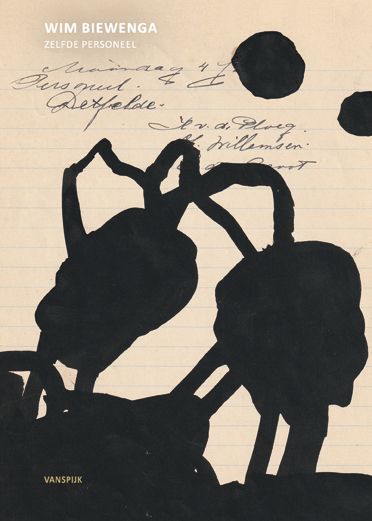 WIM BIEWENGA
ZELFDE PERSONEEL
Maandag 4
Personeel.
Hetfelde.
H. v. d. Ploeg.
Willemsen.
VANSPIJK